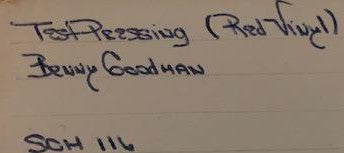 Test Pressing (Red Vinyl)
Benny Goodman
SCH 116